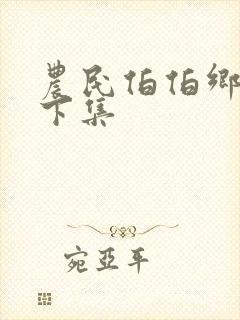 農民伯伯鄉
下集
宛亞平